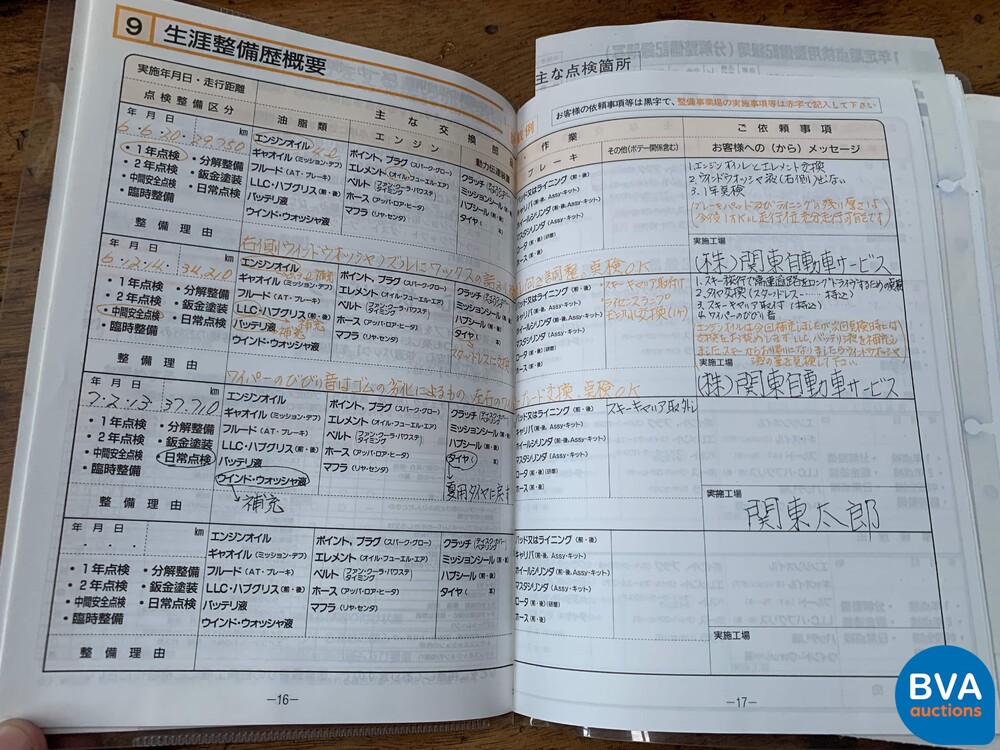 9 生涯整備歴概要
主な点検箇所
お客様の依頼事項等は黒字で、整備事業場の実施事項等は赤字で記入して下さい
実施年月日・走行距離
点検整備区分
主な交換部品
油脂類 エンジン 動力伝達装置
作業
ブレーキ その他(ボデー関係含む)
ご依頼事項
お客様への(から)メッセージ
年 月 日 km
6.6.30. 29,750
・1年点検 ・分解整備
・2年点検 ・鈑金塗装
・中間安全点検 ・日常点検
・臨時整備
整備理由
エンジンオイル 4.0
ギャオイル(ミッション・デフ)
フルード(AT・ブレーキ)
LLC・ハブグリス(前・後)
バッテリ液
ウインド・ウォッシャ液
ポイント、プラグ(スパーク・グロー)
エレメント(オイル・フューエル・エア)
ベルト(ファン・クーラ・パワステ タイミング)
ホース(アッパ・ロア・ヒータ)
マフラ(リヤ・センタ)
クラッチ
ミッションシール(前・後)
ハブシール(前・後)
タイヤ( 本)
パッド又はライニング(前・後)
キャリパ(前・後、Assy・キット)
ホイールシリンダ(前・後、Assy・キット)
マスタシリンダ(Assy・キット)
ロータ(前・後)(研磨)
ホース(前・後)
1.エンジンオイルとエレメント交換
2.ウインドウオッシャ液(右側)出ない
3.1年点検
実施工場
(株)関東自動車サービス
年 月 日 km
6.12.14. 34,210
・1年点検 ・分解整備
・2年点検 ・鈑金塗装
・中間安全点検 ・日常点検
・臨時整備
整備理由
エンジンオイル
ギャオイル(ミッション・デフ)
フルード(AT・ブレーキ)
LLC・ハブグリス(前・後) 補充
バッテリ液 補充
ウインド・ウォッシャ液
ポイント、プラグ(スパーク・グロー)
エレメント(オイル・フューエル・エア)
ベルト(ファン・クーラ・パワステ タイミング)
ホース(アッパ・ロア・ヒータ)
マフラ(リヤ・センタ)
クラッチ
ミッションシール(前・後)
ハブシール(前・後)
タイヤ( 本)
スタッドレスに交換
パッド又はライニング(前・後)
キャリパ(前・後、Assy・キット)
ホイールシリンダ(前・後、Assy・キット)
マスタシリンダ(Assy・キット)
ロータ(前・後)(研磨)
ホース(前・後)
スキーキャリア取付け
ライセンスランプ
2.タイヤ交換(スタッドレス……持込)
3.スキーキャリア取付け(持込)
4.ワイパーのびびり音
実施工場
(株)関東自動車サービス
ワイパーのびびり音はゴムの劣化によるもの 左右の 交換、点検OK
年 月 日 km
7.2.13 37,710
・1年点検 ・分解整備
・2年点検 ・鈑金塗装
・中間安全点検 ・日常点検
・臨時整備
整備理由
エンジンオイル
ギャオイル(ミッション・デフ)
フルード(AT・ブレーキ)
LLC・ハブグリス(前・後)
バッテリ液
ウインド・ウォッシャ液
補充
ポイント、プラグ(スパーク・グロー)
エレメント(オイル・フューエル・エア)
ベルト(ファン・クーラ・パワステ タイミング)
ホース(アッパ・ロア・ヒータ)
マフラ(リヤ・センタ)
クラッチ
ミッションシール(前・後)
ハブシール(前・後)
タイヤ( 本)
夏用タイヤに戻す
パッド又はライニング(前・後)
キャリパ(前・後、Assy・キット)
ホイールシリンダ(前・後、Assy・キット)
マスタシリンダ(Assy・キット)
ロータ(前・後)(研磨)
ホース(前・後)
スキーキャリア取外し
実施工場
関東太郎
年 月 日 km
・1年点検 ・分解整備
・2年点検 ・鈑金塗装
・中間安全点検 ・日常点検
・臨時整備
整備理由
エンジンオイル
ギャオイル(ミッション・デフ)
フルード(AT・ブレーキ)
LLC・ハブグリス(前・後)
バッテリ液
ウインド・ウォッシャ液
ポイント、プラグ(スパーク・グロー)
エレメント(オイル・フューエル・エア)
ベルト(ファン・クーラ・パワステ タイミング)
ホース(アッパ・ロア・ヒータ)
マフラ(リヤ・センタ)
クラッチ(ディスク・カバー ベアリング)
ミッションシール(前・後)
ハブシール(前・後)
タイヤ( 本)
パッド又はライニング(前・後)
キャリパ(前・後、Assy・キット)
ホイールシリンダ(前・後、Assy・キット)
マスタシリンダ(Assy・キット)
ロータ(前・後)(研磨)
ホース(前・後)
実施工場
—16—
—17—
BVA
auctions